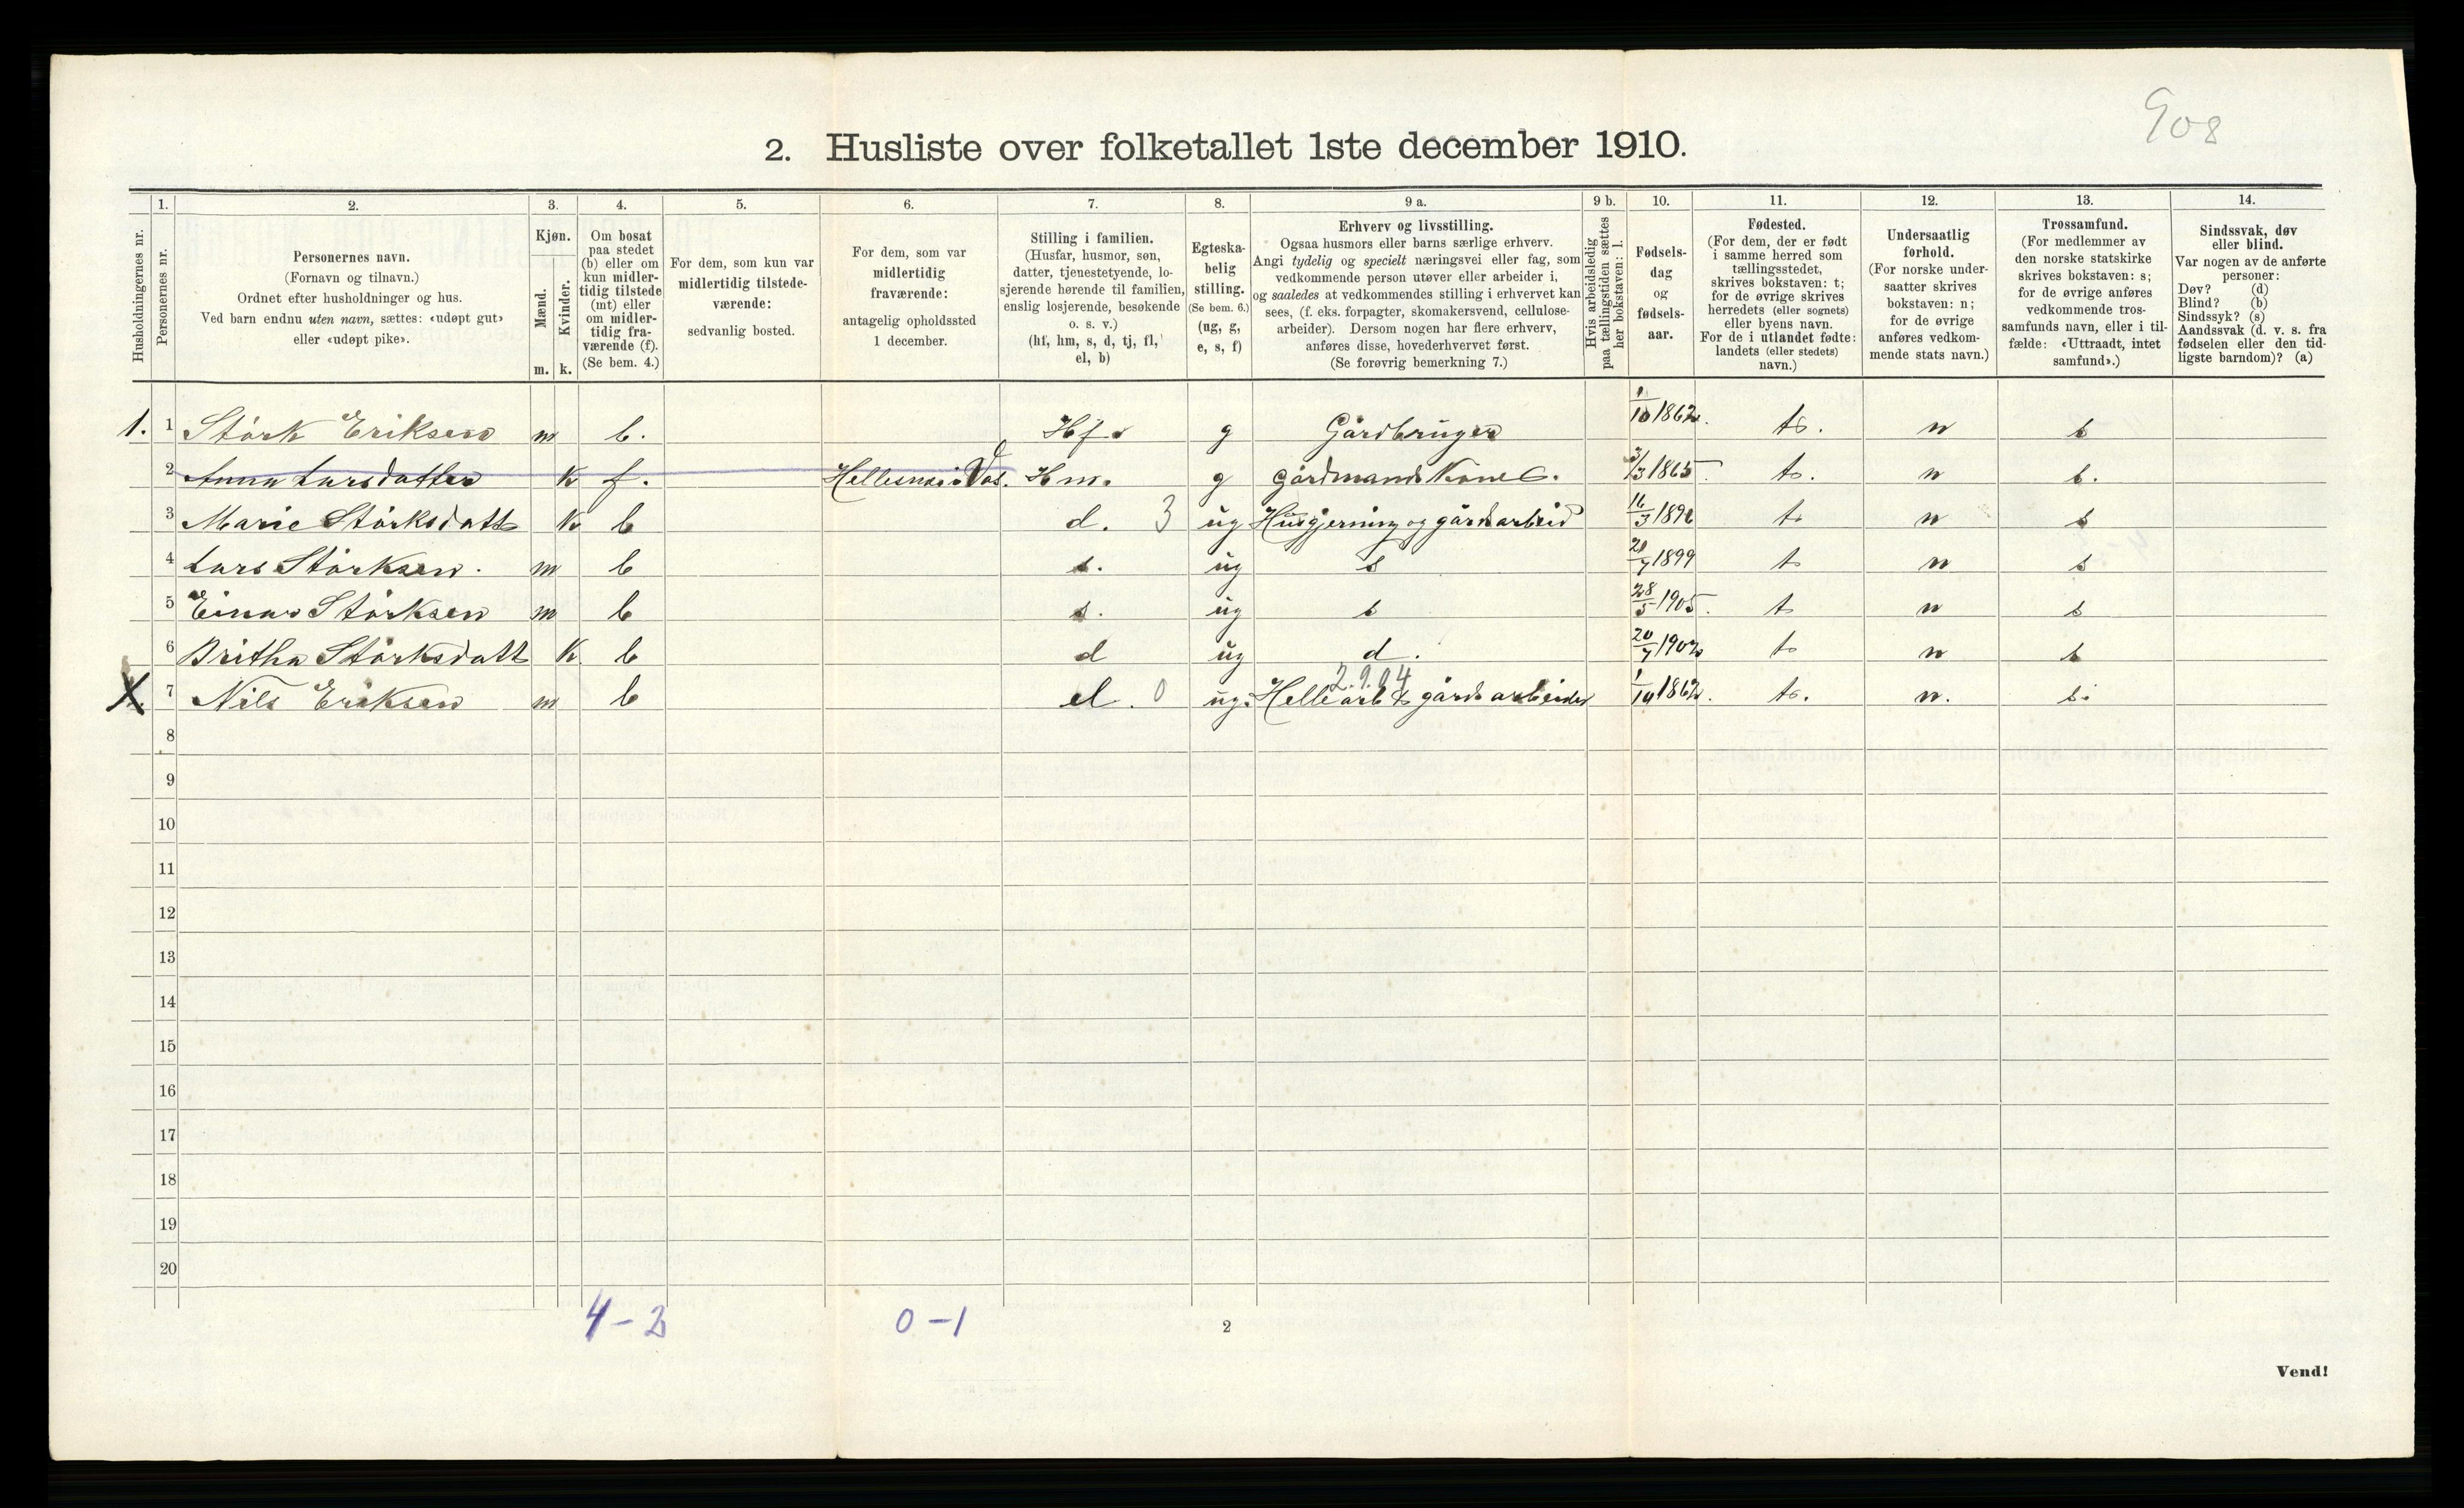 908
2. Husliste over folketallet 1ste december 1910.
Husholdningernes nr.
1.
Personernes nr.
2.
Personernes navn.
(Fornavn og tilnavn.)
Ordnet efter husholdninger og hus.
Ved barn endnu uten navn, sættes: «udøpt gut»
eller «udøpt pike».
3.
Kjøn.
Mænd.
Kvinder.
m. k.
4.
Om bosat
paa stedet
(b) eller om
kun midler-
tidig tilstede
(mt) eller
om midler-
tidig fra-
værende (f).
(Se bem. 4.)
5.
For dem, som kun var
midlertidig tilstede-
værende:
sedvanlig bosted.
6.
For dem, som var
midlertidig
fraværende:
antagelig opholdssted
1 december.
7.
Stilling i familien.
(Husfar, husmor, søn,
datter, tjenestetyende, lo-
sjerende hørende til familien,
enslig losjerende, besøkende
o. s. v.)
(hf, hm, s, d, tj, fl,
el, b)
8.
Egteska-
belig
stilling.
(Se bem. 6.)
(ug, g,
e, s, f)
9 a.
Erhverv og livsstilling.
Ogsaa husmors eller barns særlige erhverv.
Angi tydelig og specielt næringsvei eller fag, som
vedkommende person utøver eller arbeider i,
og saaledes at vedkommendes stilling i erhvervet kan
sees, (f. eks. forpagter, skomakersvend, cellulose-
arbeider). Dersom nogen har flere erhverv,
anføres disse, hovederhvervet først.
(Se forøvrig bemerkning 7.)
9 b.
Hvis arbeidsledig
paa tællingstiden sættes
her bokstaven: l.
10.
Fødsels-
dag
og
fødsels-
aar.
11.
Fødested.
(For dem, der er født
i samme herred som
tællingsstedet,
skrives bokstaven: t;
for de øvrige skrives
herredets (eller sognets)
eller byens navn.
For de i utlandet fødte:
landets (eller stedets)
navn.)
12.
Undersaatlig
forhold.
(For norske under-
saatter skrives
bokstaven: n;
for de øvrige
anføres vedkom-
mende stats navn.)
13.
Trossamfund.
(For medlemmer av
den norske statskirke
skrives bokstaven: s;
for de øvrige anføres
vedkommende tros-
samfunds navn, eller i til-
fælde: «Uttraadt, intet
samfund».)
14.
Sindssvak, døv
eller blind.
Var nogen av de anførte
personer:
Døv? (d)
Blind? (b)
Sindssyk? (s)
Aandssvak (d. v. s. fra
fødselen eller den tid-
ligste barndom)? (a)
1. 1 Störk Eriksen m b. Hf. g Gårdbruger 1/10 1862. t. n s
2 Anna Larsdatter k f. Hellesnes i Vos. Hm. g gårdmands Kone. 3/3 1865. t. n s.
3 Marie Störksdatt k b d. 3 ug Husgjerning og gårdsarbeid t n s
4 Lars Störksen. m b s. ug s 21/7 1899 t n s
5 Einar Störksen m b s. ug s 28/5 1905. t n s
6 Britha Störksdatt k. b d ug d. 20/7 1902 t n s
2.9.04
X 7 Nils Eriksen m b el. 0 ug. Hellearb & gårdsarbeider 1/10 1862. t. n. s.
8
9
10
11
12
13
14
15
16
17
18
19
20
4-2 0-1 2
Vend!